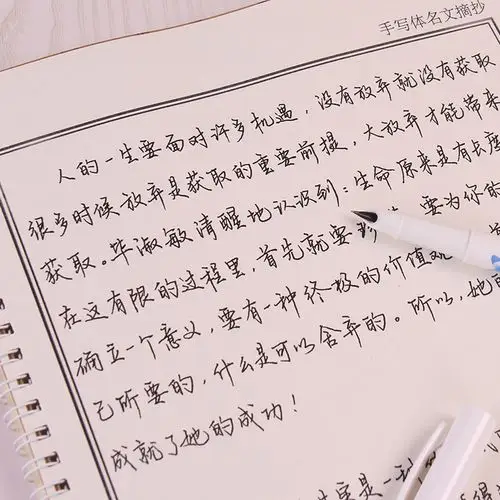 手写体名文摘抄
人的一生要面对许多机遇，没有放弃就没有获取
很多时候放弃是获取的重要前提，大放弃才能带来
获取。毕淑敏清醒地认识到：生命原来是有长度
在这有限的过程里，首先就要 要为你
确立一个意义，要有一种终极的价值观
己所要的，什么是可以舍弃的。所以，她
成就了她的成功！
是一种